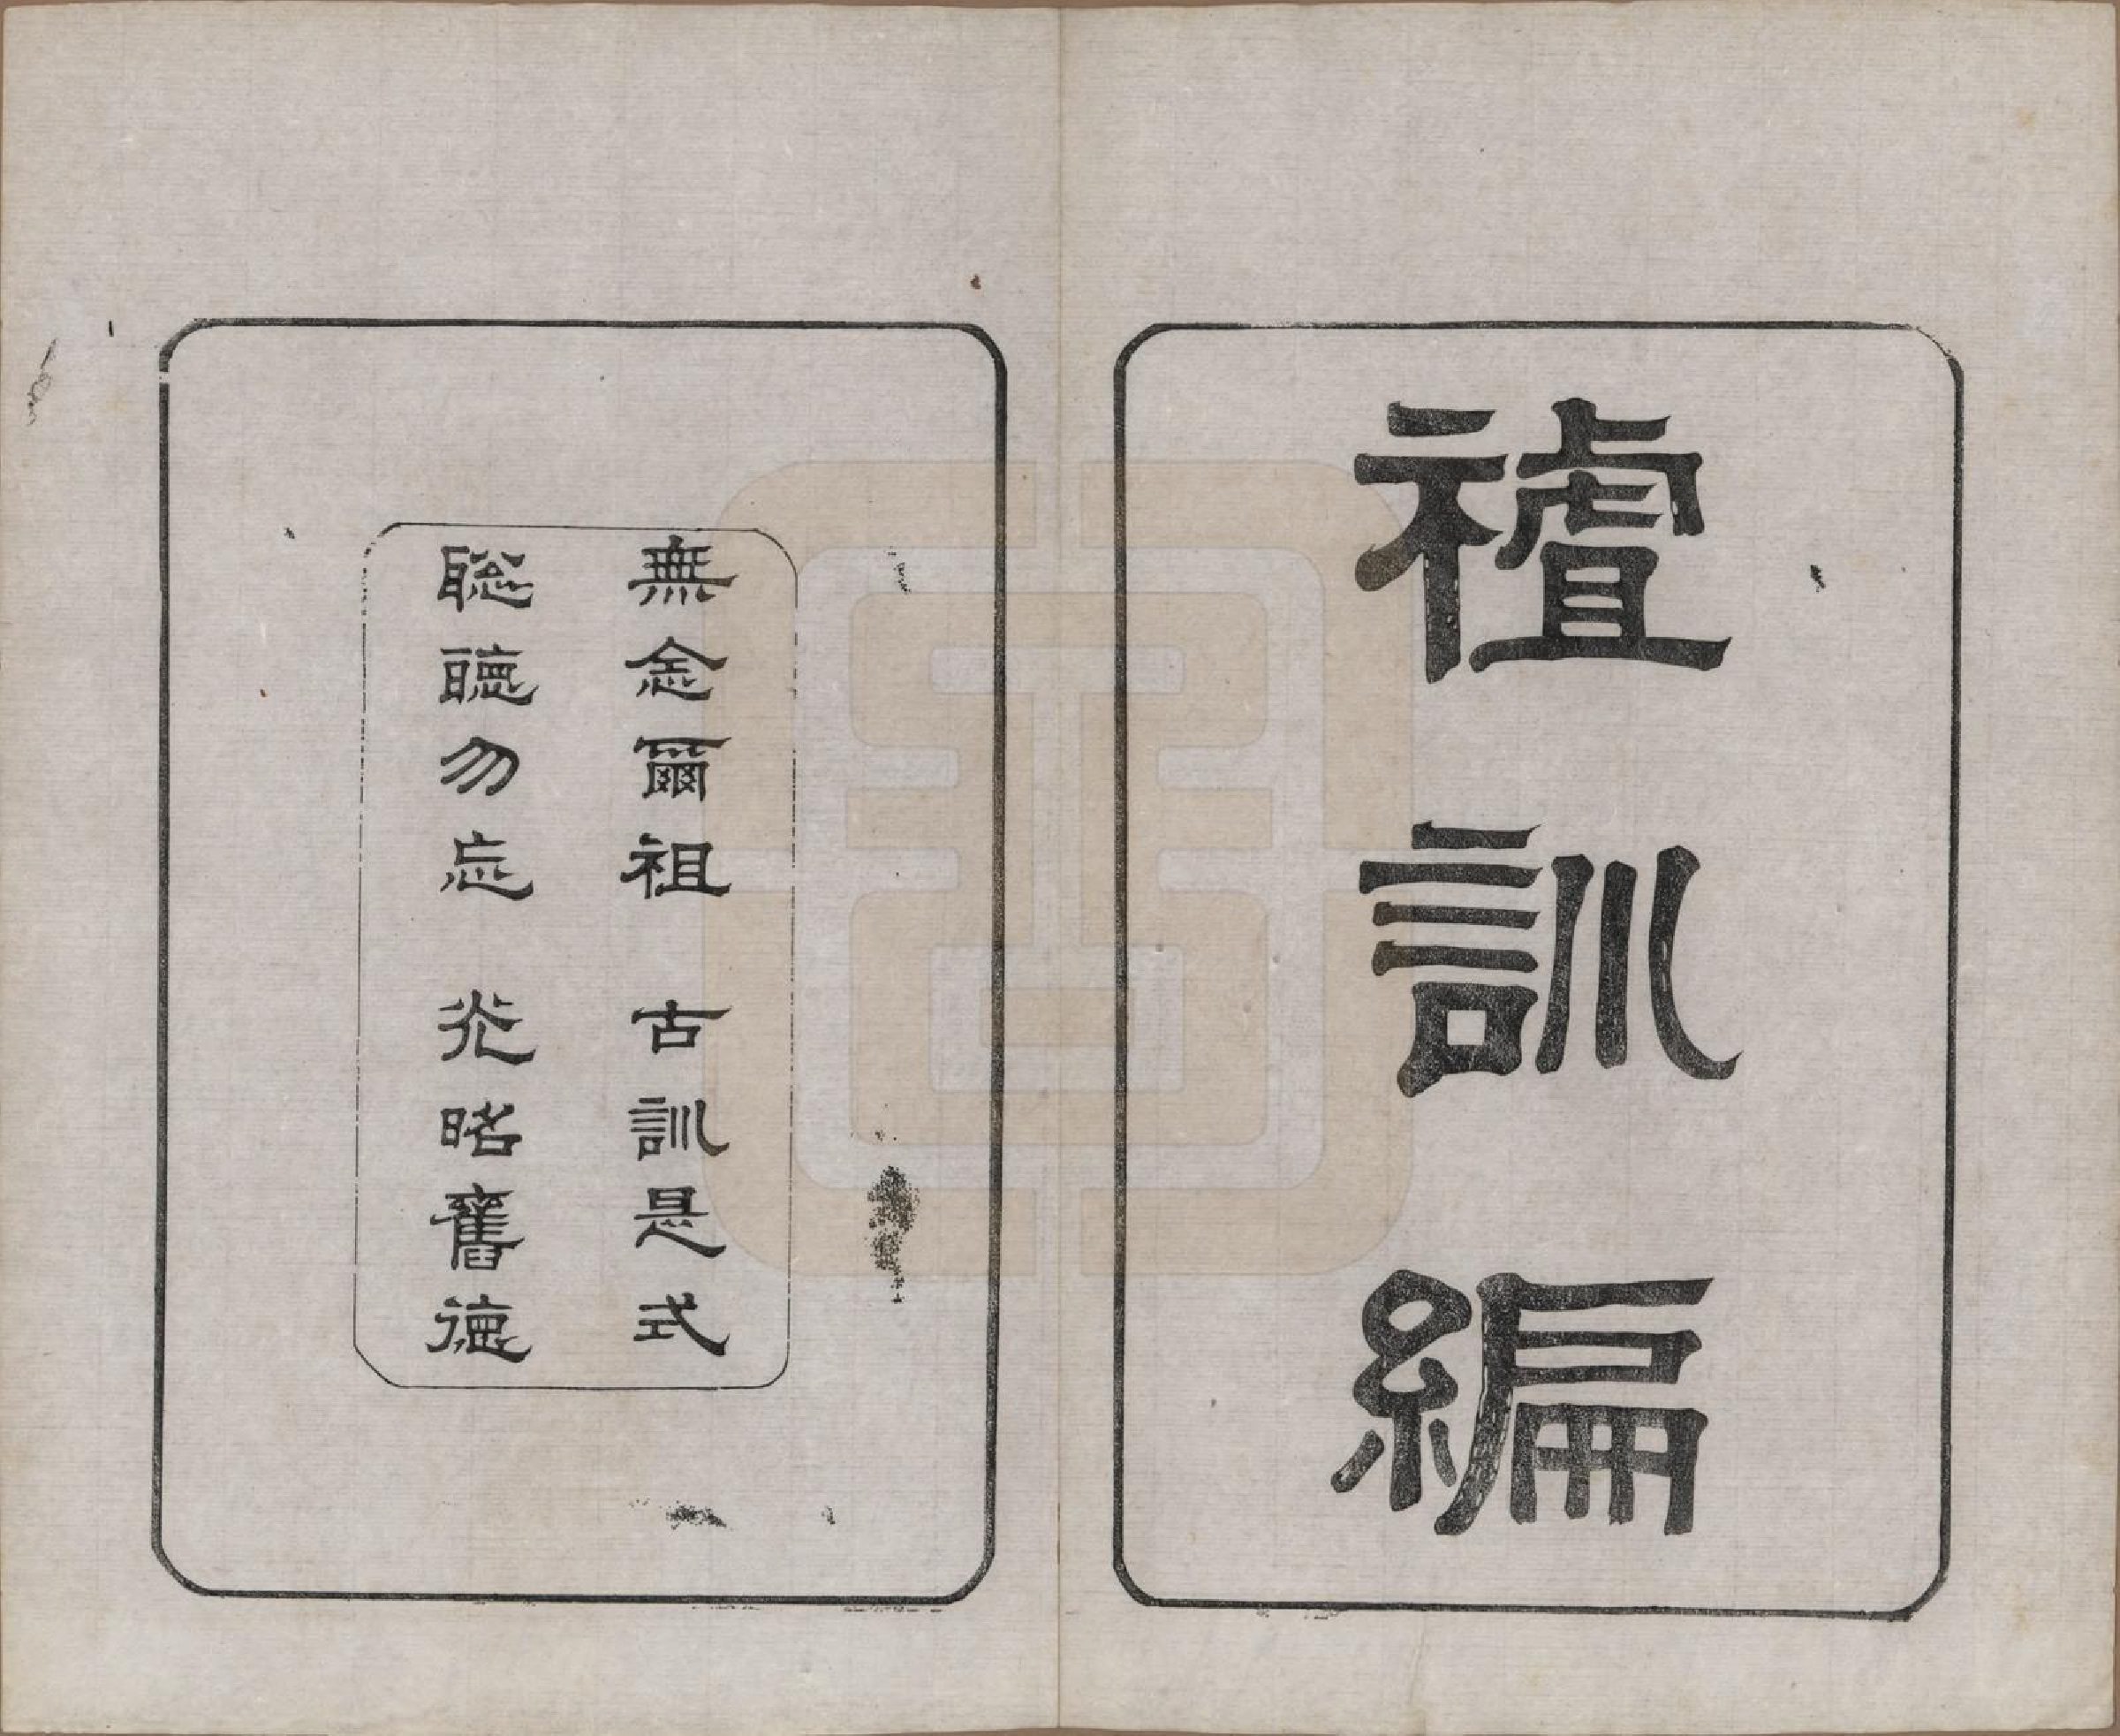 𥛜訓編
無念爾祖 古訓是式
聰聽勿忘 光昭舊德